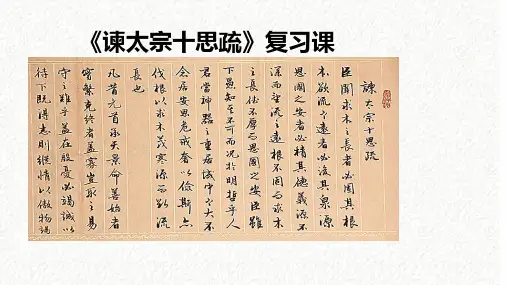 《谏太宗十思疏》复习课
諫太宗十思疏
臣聞求木之長者必固其根
本欲流之遠者必浚其泉源
思國之安者必積其德義源不
深而望流之遠根不固而求木
之長德不厚而思國之安臣雖
下愚知其不可而況於明哲乎人
君當神器之重居域中之大不
念居安思危戒奢以儉斯亦
伐根以求木茂塞源而欲流
長也
凡昔元首承天景命善始者
實繁克終者蓋寡豈取之易
守之難乎蓋在殷憂必竭誠以
待下既得志則縱情以傲物竭